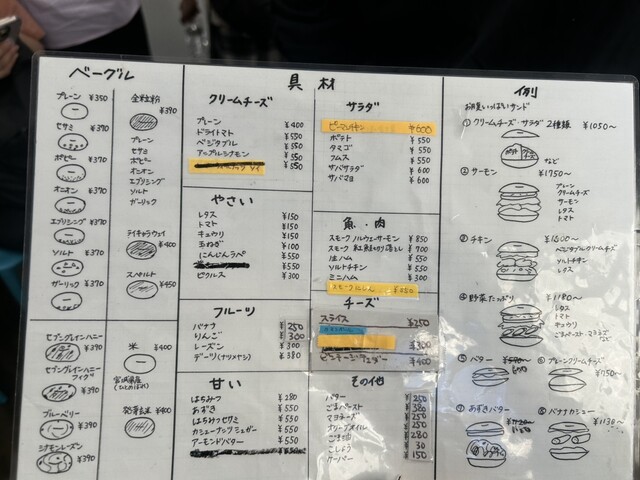 ベーグル
プレーン ¥350
セサミ ¥370
ポピー ¥370
オニオン ¥370
エブリシング ¥370
ソルト ¥370
ガーリック ¥370
全粒粉 ¥390
プレーン
セサミ
ポピー
オニオン
エブリシング
ソルト
ガーリック
¥400
スペルト ¥450
セブングレインハニー ¥390
セブングレインハニーフィグ ¥390
ブルーベリー ¥390
シナモンレーズン ¥390
米 ¥400
宮城県産
(ひとめぼれ)
発芽玄米 ¥400
具材
クリームチーズ
プレーン ¥400
ドライトマト ¥550
ベジタブル ¥550
アップルシナモン ¥550
¥550
やさい
レタス ¥150
トマト ¥150
キュウリ ¥150
玉ねぎ ¥100
にんじんラペ ¥300
¥550
ピクルス ¥300
フルーツ
バナナ 250
りんご 300
レーズン ¥300
デーツ(ナツメヤシ) ¥380
甘い
はちみつ ¥280
あずき ¥550
はちみつセサミ ¥550
カシューナッツシュガー ¥550
アーモンドバター ¥550
サラダ
¥600
ポテト ¥550
タマゴ ¥550
フムス ¥550
サバサラダ ¥600
サバマヨ ¥600
魚・肉
スモークノルウェーサーモン ¥850
スモーク紅鮭切り落とし ¥700
生ハム ¥550
ソルトチキン ¥550
ミニハム ¥300
スモークにしん ¥850
チーズ
スライス ¥250
¥300
¥400
その他
バター 250
ごまペースト 380
マヨチーズ 250
オリーブオイル 250
ごま油 280
こしょう 30
ケーパー 150
例
お具いっぱいサンド
① クリームチーズ・サラダ 2種類 ¥1050~
など
② サーモン ¥1750~
プレーン
クリームチーズ
サーモン
レタス
トマト
チキン
ベジタブルクリームチーズ
ソルトチキン
レタス
④ 野菜たっぷり ¥1180~
レタス
トマト
キュウリ
⑤ バター
⑥ プレーンクリームチーズ ¥750~
⑦ あずきバター
⑧ バナナカシュー ¥1130~